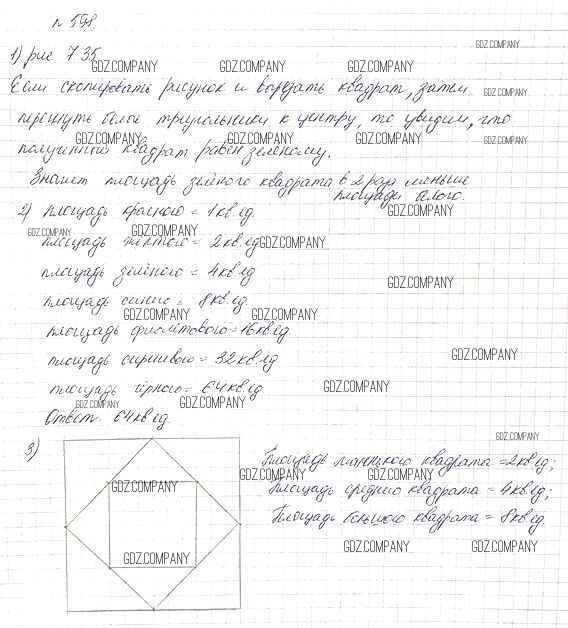 № 598.
1) рис 7.35
GDZ.COMPANY GDZ.COMPANY GDZ.COMPANY GDZ.COMPANY
Если скопировать рисунок и вырезать квадрат, затем
GDZ.COMPANY
перегнуть белые треугольники к центру, то увидим, что
GDZ.COMPANY GDZ.COMPANY GDZ.COMPANY GDZ.COMPANY
полученный квадрат равен зеленому.
Значит площадь зелёного квадрата в 2 раза меньше
площади белого.
2) площадь красного = 1 кв.ед.
GDZ.COMPANY
GDZ.COMPANY GDZ.COMPANY
площадь жёлтого = 2 кв.ед
GDZ.COMPANY
площадь зелёного = 4 кв.ед
GDZ.COMPANY
площадь синего = 8 кв.ед
GDZ.COMPANY GDZ.COMPANY
площадь фиолетового = 16 кв.ед
площадь сиреневого = 32 кв.ед
GDZ.COMPANY
площадь чёрного = 64 кв.ед
GDZ.COMPANY
GDZ.COMPANY GDZ.COMPANY
Ответ: 64 кв.ед.
GDZ.COMPANY
3)
Площадь маленького квадрата = 2 кв.ед;
GDZ.COMPANY GDZ.COMPANY
GDZ.COMPANY
Площадь среднего квадрата = 4 кв.ед;
Площадь большого квадрата = 8 кв.ед.
GDZ.COMPANY GDZ.COMPANY GDZ.COMPANY